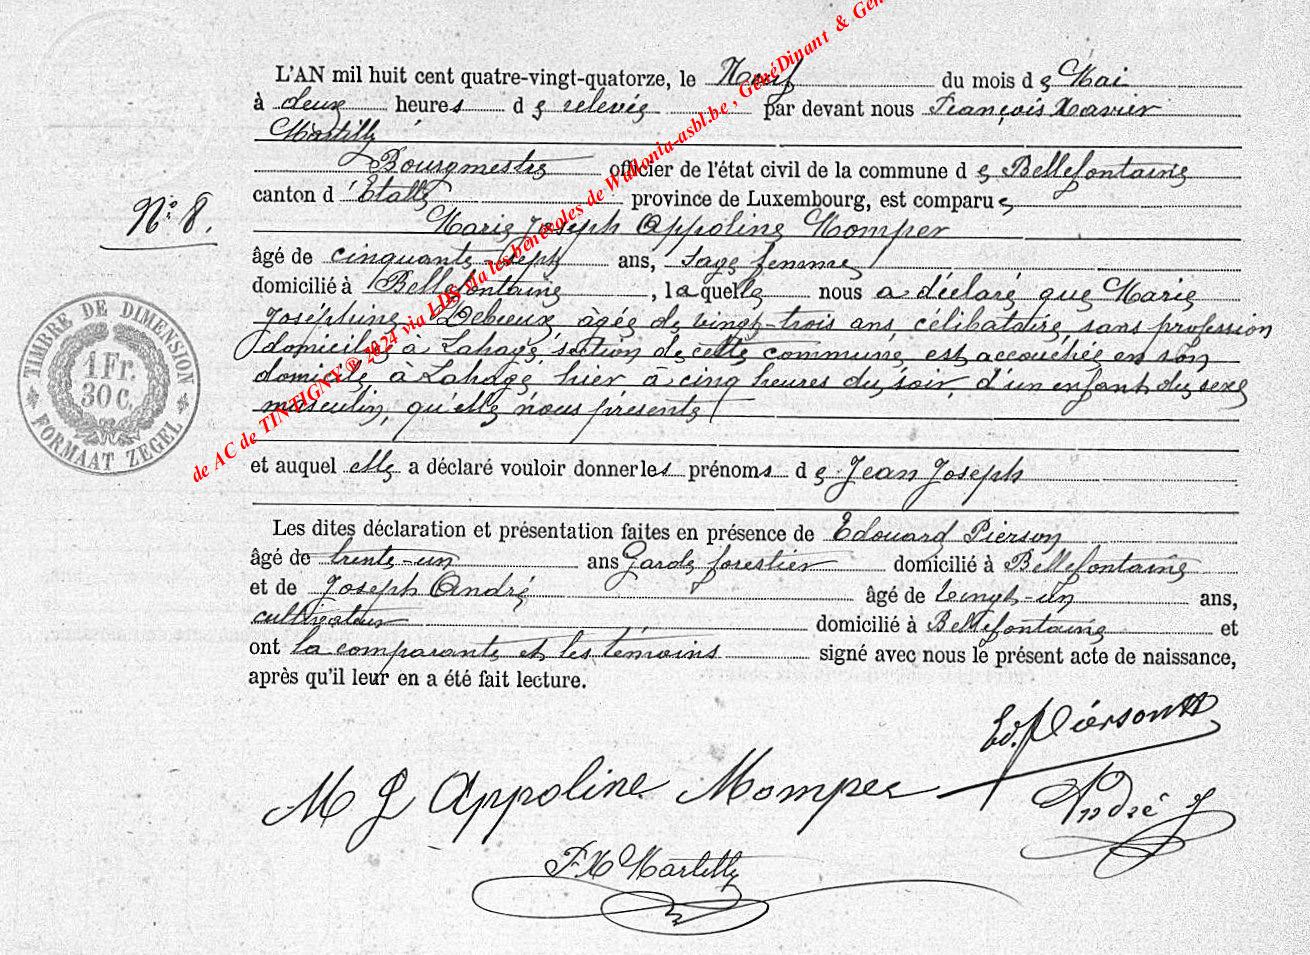 L'AN mil huit cent quatre-vingt-quatorze, le Neuf du mois de Mai
à deux heures de relevée par devant nous François Xavier
Martilly
Bourgmestre officier de l'état civil de la commune de Bellefontaine
canton d'Etalle province de Luxembourg, est comparue
N° 8.
Marie Joseph Appoline Momper
âgé de cinquante-sept ans, sage femme
domicilié à Bellefontaine, laquelle nous a déclaré que Marie
Joséphine Debeux, âgée de vingt-trois ans, célibataire, sans profession
domiciliée à Lahage, section de cette commune, est accouchée en son
domicile à Lahage, hier à cinq heures du soir, d'un enfant du sexe
masculin, qu'elle nous présente
et auquel elle a déclaré vouloir donner les prénoms de Jean Joseph
Les dites déclaration et présentation faites en présence de Edouard Pierson
âgé de trente-un ans Garde forestier domicilié à Bellefontaine
et de Joseph André âgé de vingt-un ans,
cultivateur domicilié à Bellefontaine et
ont la comparante et les témoins signé avec nous le présent acte de naissance,
après qu'il leur en a été fait lecture.
Ed. Pierson
M J Appoline Momper
André J
F X Martilly
TIMBRE DE DIMENSION
1 Fr.
30 C.
FORMAAT ZEGEL
de AC de TINTIGNY ® 2024 via LDS via les bénévoles de Wallonia-asbl.be , GénéDinant & Gén